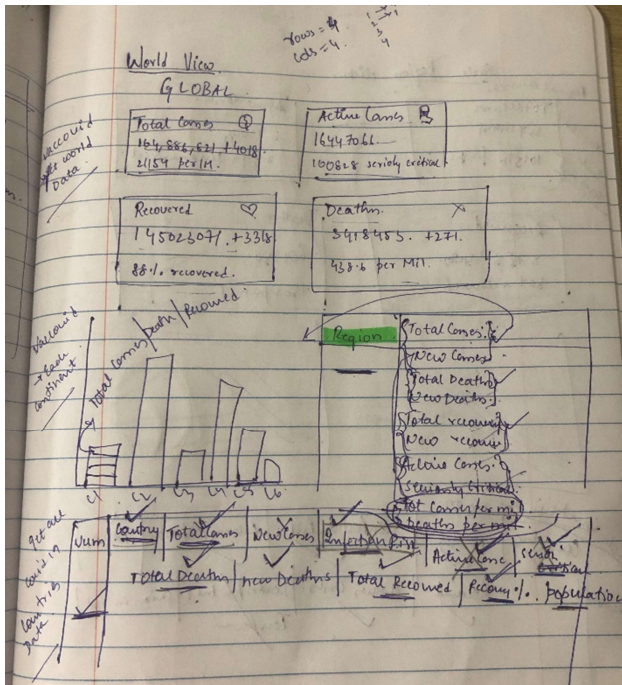 rows = 4
cols = 4.
1
2
3
4
World View
GLOBAL
Total Cases
164,886,621, +4018
21154 per 1M.
Active Cases
16447066
100828 seriosly critical
vaccovid
world
Data.
Recovered
145023071. +3318
88% recovered.
Deaths.
3418453. +271.
438.6 per Mil.
vaccovid
→ Each
continent
Total Cases/Death/Recovered.
C1
C2
C3
C4
C5
C6
Region
Total Cases.
New Cases
Total Deaths
New Deaths.
Total recovery
New recover
Active Cases.
Seriously Critical
Tot Cases per mi
Deaths per mi
get all
covid in
Countries
Data
num
Country
Total Cases
New Cases
Infection Risk
Active Case
Total Deaths
new Deaths
Total Recovered
Recovery %.
population